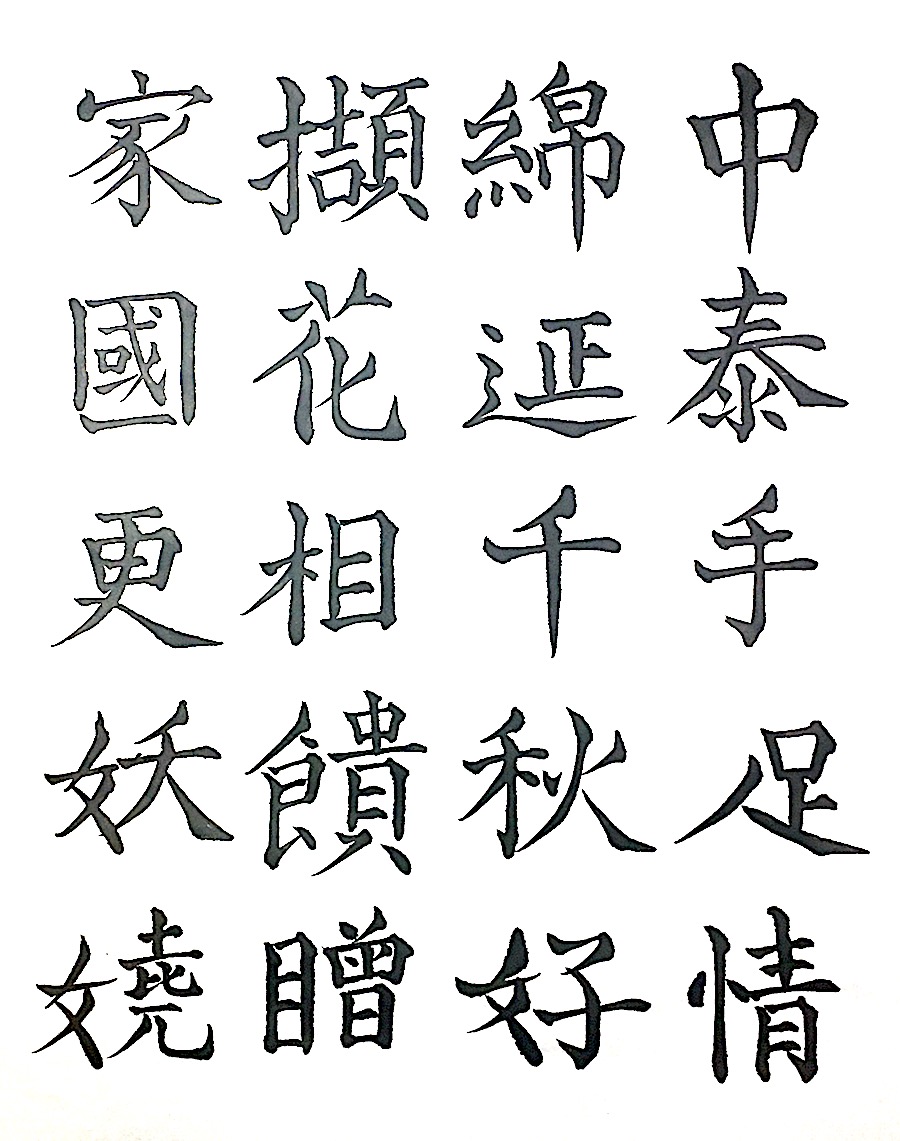 中泰手足情
綿延千秋好
擷花相饋贈
家國更妖嬈